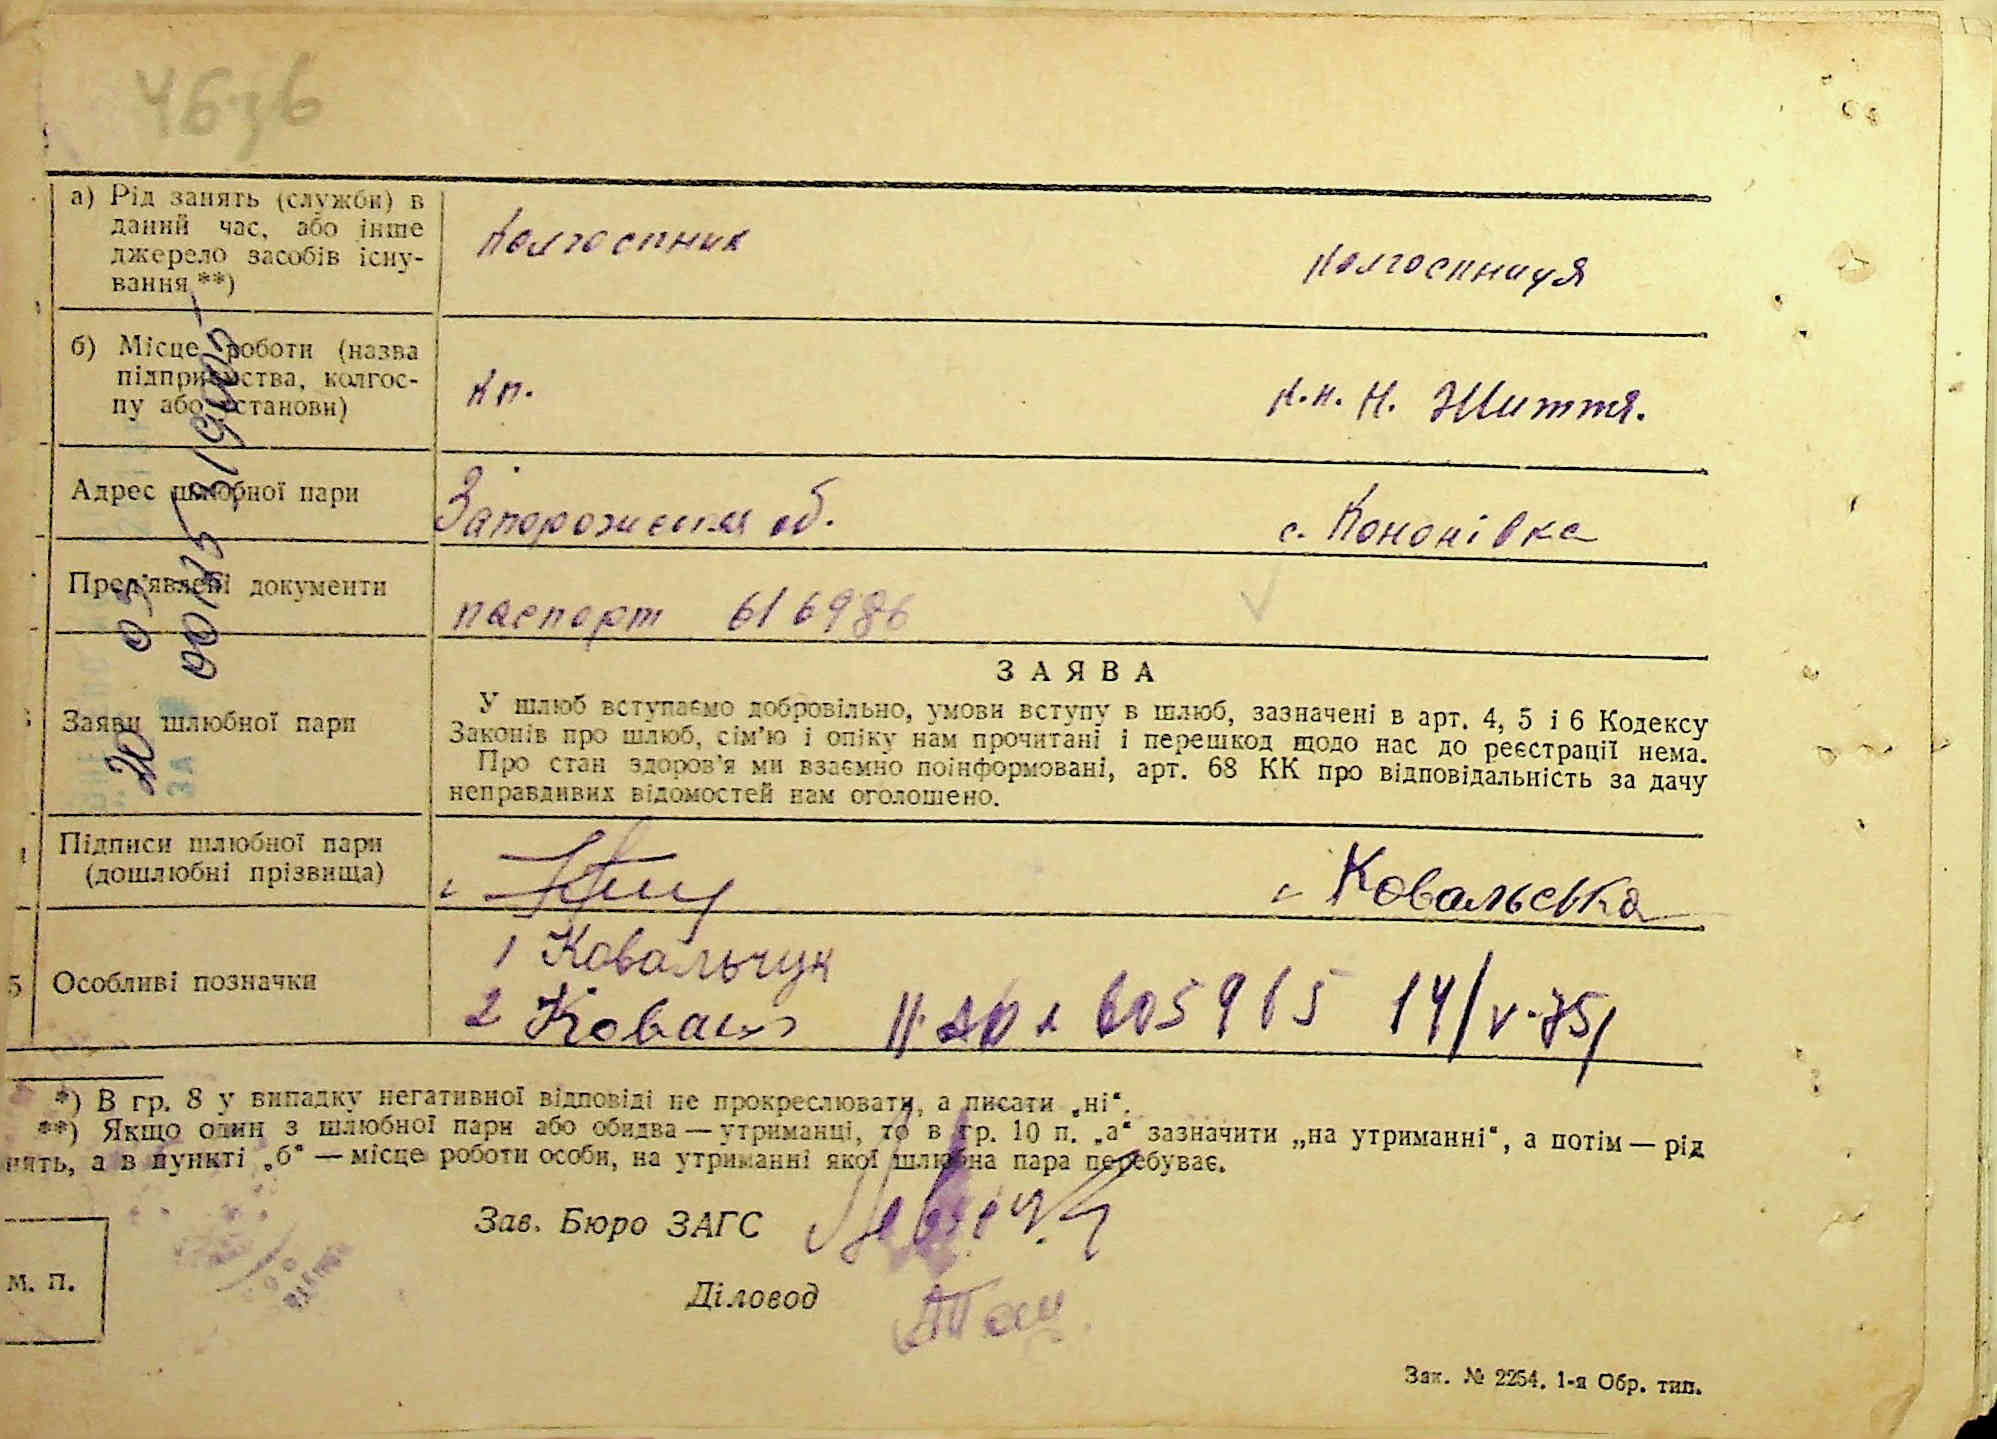 а) Рід занять (служби) в
даний час, або інше
джерело засобів існу-
вання **)
Колгоспник
Колгоспниця
б) Місце роботи (назва
підприємства, колгос-
пу або установи)
к.п. Н. Життя.
Адрес шлюбної пари
Запорожская об.
с. Кононівка
Пред'явлені документи
паспорт 616986
Заяви шлюбної пари
ЗАЯВА
У шлюб вступаємо добровільно, умови вступу в шлюб, зазначені в арт. 4, 5 і 6 Кодексу
Законів про шлюб, сім'ю і опіку нам прочитані і перешкод щодо нас до реєстрації нема.
Про стан здоров'я ми взаємно поінформовані, арт. 68 КК про відповідальність за дачу
неправдивих відомостей нам оголошено.
Підписи шлюбної пари
(дошлюбні прізвища)
Ковальська
5 Особливі позначки
1 Ковальчук
2 605965 14/V-75
*) В гр. 8 у випадку негативної відповіді не прокреслювати, а писати „ні“.
**) Якщо один з шлюбної пари або обидва — утриманці, то в гр. 10 п. „а“ зазначити „на утриманні“, а потім — рід
нять, а в пункті „б“ — місце роботи особи, на утриманні якої шлюбна пара перебуває.
Зав. Бюро ЗАГС
Діловод
М. П.
Зак. № 2254. 1-я Обр. тип.